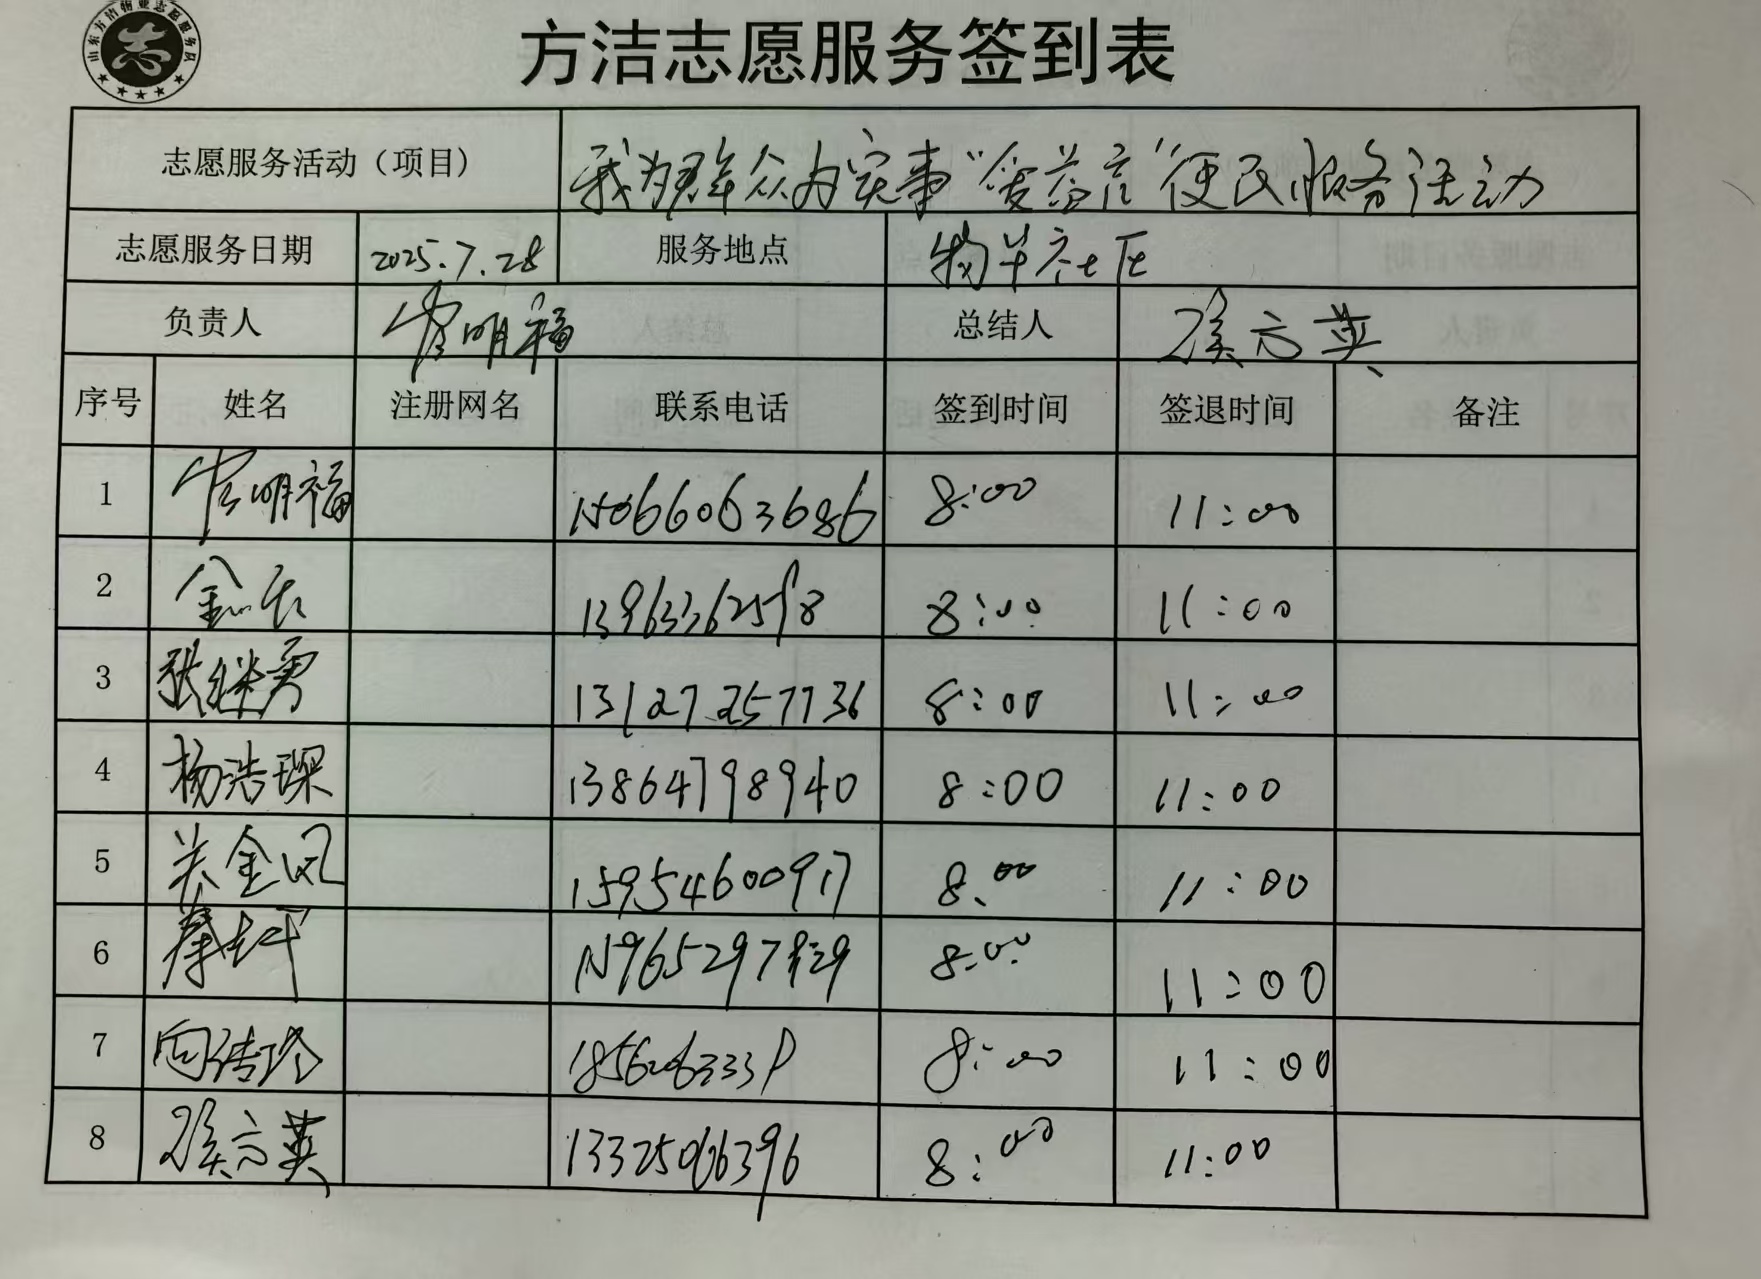 山东方洁物业志愿服务队
志
方洁志愿服务签到表
志愿服务活动（项目） 我为群众办实事“爱益言”便民服务活动
志愿服务日期 2025.7.28 服务地点 物华社区
负责人 明福 总结人 侯方英
序号 姓名 注册网名 联系电话 签到时间 签退时间 备注
1 明福 15066063686 8:00 11:00
2 8:00 11:00
3 张继勇 13127257736 8:00 11:00
4 杨浩琛 13864798940 8:00 11:00
5 关金凤 15954600917 8:00 11:00
6 秦 8:00 11:00
7 向 8:00 11:00
8 侯方英 8:00 11:00